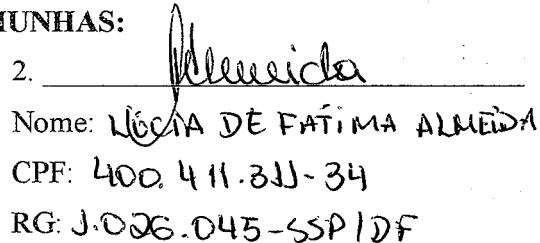 MUNHAS:
2. Almeida
Nome: LÚCIA DE FATIMA ALMEIDA
CPF: 400.411.311-34
RG: 1.026.045-SSP/DF